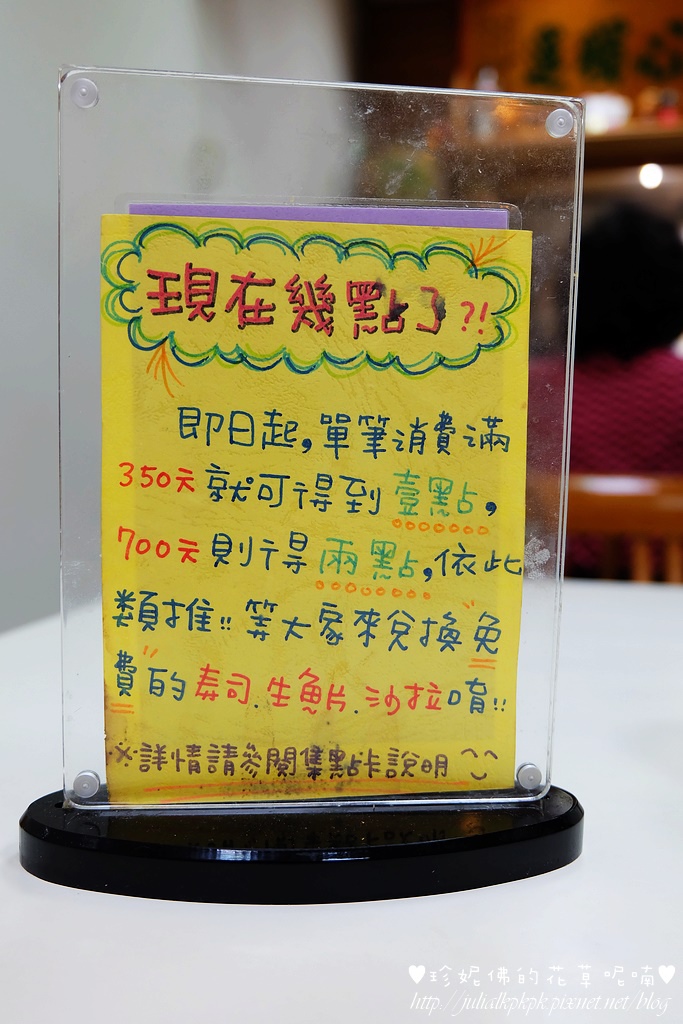 現在幾點了?!
即日起,單筆消費滿
350元就可得到壹點,
700元則得兩點,依此
類推!! 等大家來兌換"免
費"的壽司.生魚片.沙拉唷!!
※詳情請參閱集點卡說明^^
♥珍妮佛的花草呢喃♥
http://julialkpkpk.pixnet.net/blog